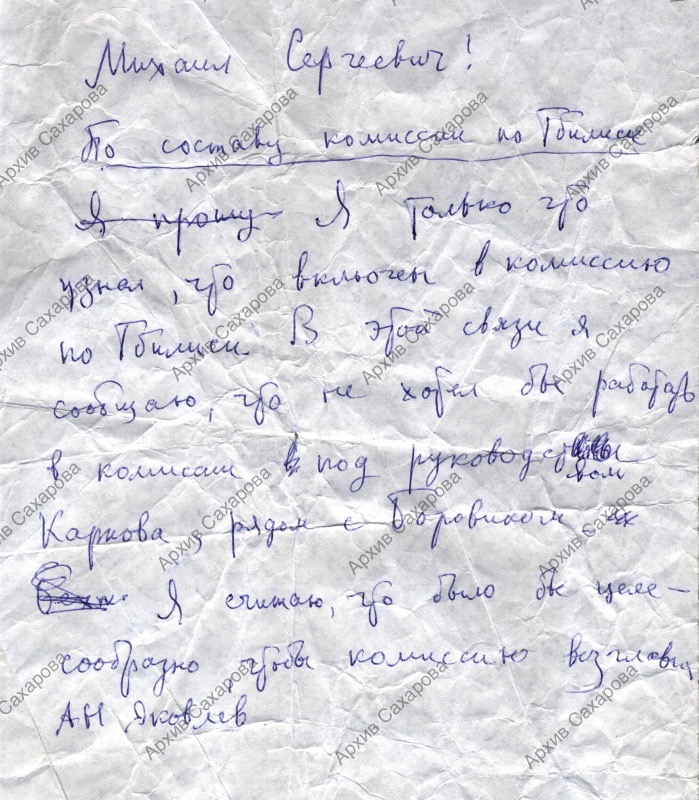 Михаил Сергеевич!
По составу комиссии по Тбилиси
Я прошу Я только что
узнал, что включен в комиссию
по Тбилиси. В этой связи я
сообщаю, что не хотел бы работать
в комиссии под руководством
Карпова, рядом с Боровиком.
Я считаю, что было бы целе-
сообразно, чтобы комиссию возглавил
АН Яковлев
Архив Сахарова